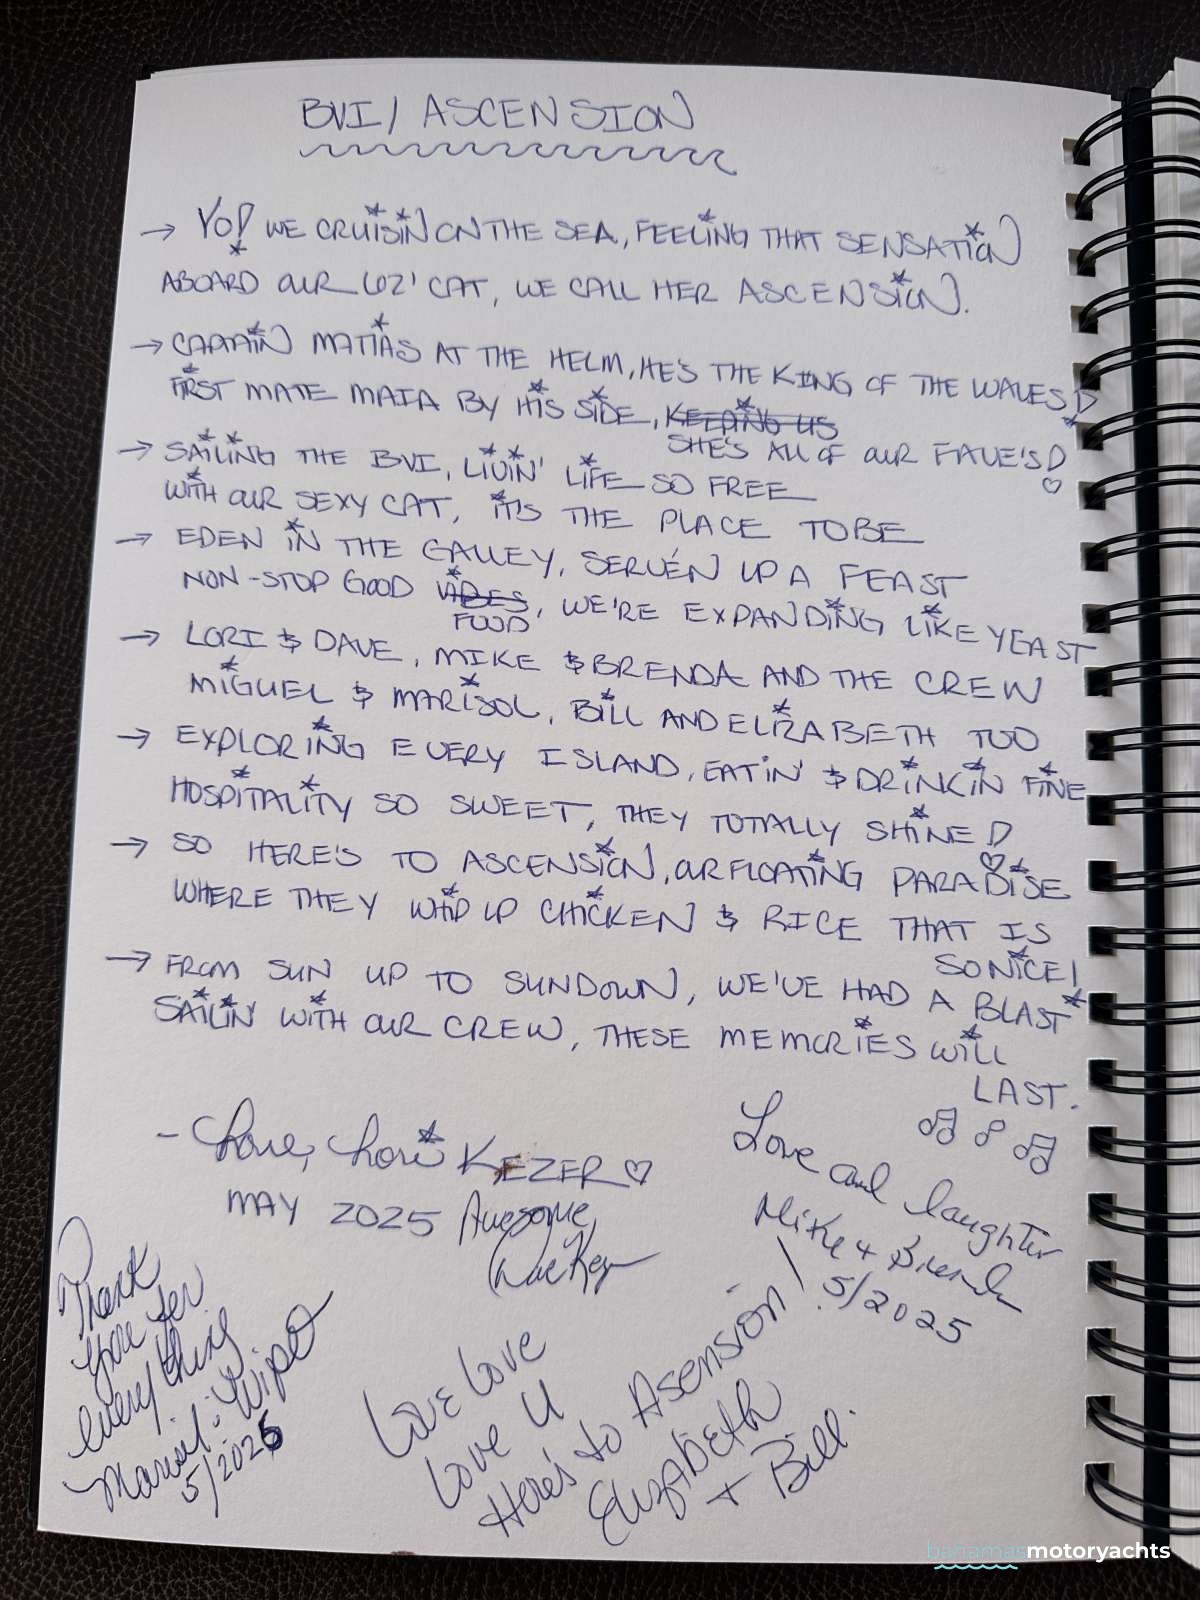 BVI / ASCENSION
→ YO! WE CRUISIN ON THE SEA, FEELING THAT SENSATION
ABOARD OUR 62' CAT, WE CALL HER ASCENSION.
→ CAPTAIN MATIAS AT THE HELM, HE'S THE KING OF THE WAVES!
FIRST MATE MAIA BY HIS SIDE, KEEPING US
SHE'S ALL OF OUR FAVE'S! ♡
→ SAILING THE BVI, LIVIN' LIFE SO FREE
WITH OUR SEXY CAT, IT'S THE PLACE TO BE
→ EDEN IN THE GALLEY, SERVÉN UP A FEAST
NON-STOP GOOD VIBES, WE'RE EXPANDING LIKE YEAST
FOOD
→ LORI & DAVE, MIKE & BRENDA AND THE CREW
MIGUEL & MARISOL, BILL AND ELIZABETH TOO
→ EXPLORING EVERY ISLAND, EATIN' & DRINKIN FINE
HOSPITALITY SO SWEET, THEY TOTALLY SHINE! ♡
→ SO HERE'S TO ASCENSION, OUR FLOATING PARADISE
WHERE THEY WHIP UP CHICKEN & RICE THAT IS
SO NICE!
→ FROM SUN UP TO SUNDOWN, WE'VE HAD A BLAST
SAILIN' WITH OUR CREW, THESE MEMORIES WILL
LAST.
- Love, Lori KEZER ♡
MAY 2025
Awesome
Love and laughter
Mike + Brenda
5/2025
Thank
you for
everything
5/2025
Live Love
Love U
Here's to Asension!
Elizabeth
+ Bill.
bahamasmotoryachts